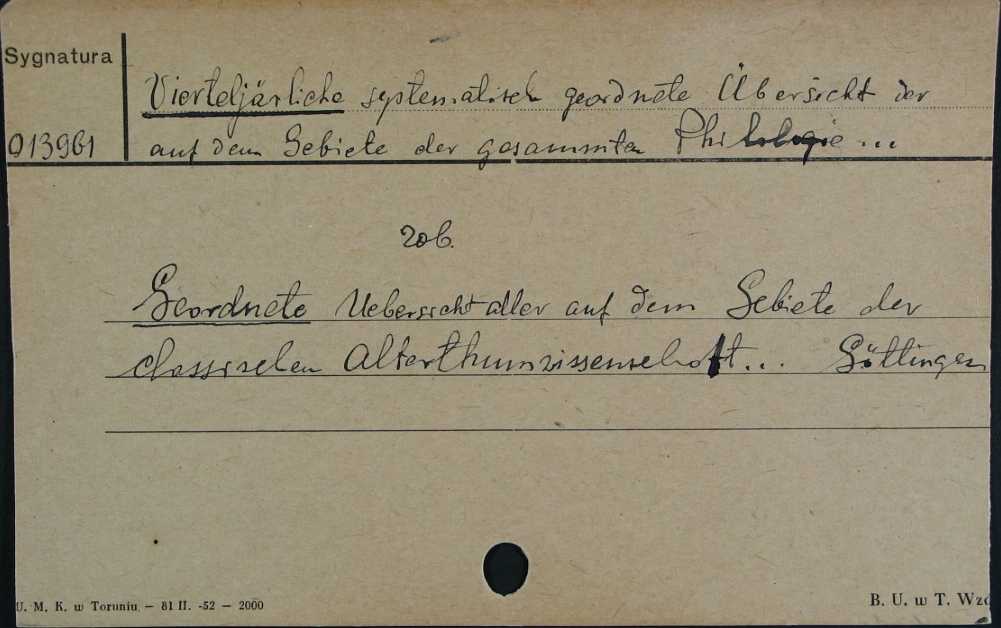 Sygnatura
Vierteljärliche systematisch geordnete Übersicht der
013961 auf dem Gebiete der gesammten Philologie ...
zob.
Geordnete Uebersicht aller auf dem Gebiete der
classischen Alterthumswissenschaft... Göttingen
U. M. K. w Toruniu — 81 II. -52 — 2000
B. U. w T. Wzó